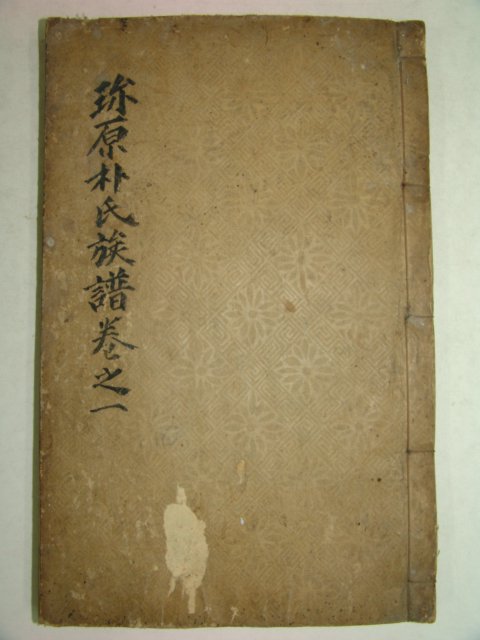 珎原朴氏族譜卷之一